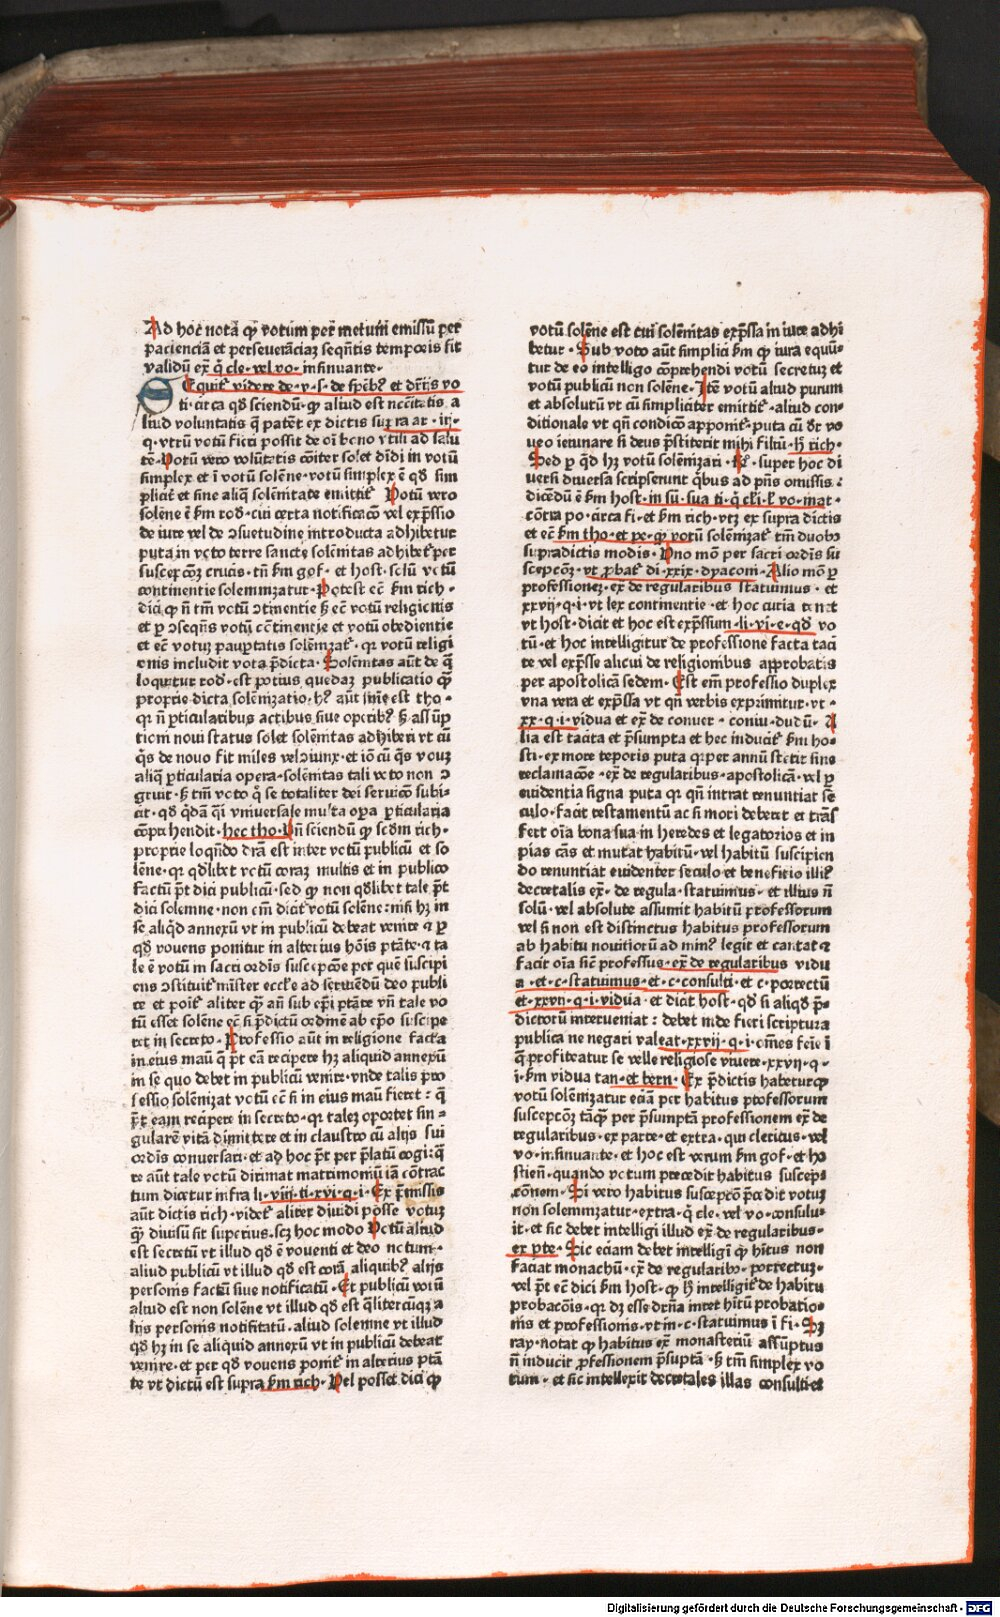 Ad hoc notā ꝙ votum per metum emissū per
pacienciā et perseverāciaꝫ seqn̄tis temporis fit
validū ex̄ q̄ cle · vel vo · insinuante ·
Sequit᷑ videre de · v · s · de sp̄ebꝰ et dr̄ijs vo
ti · circa qd̄ sciendū · ꝙ aliud est nccitatis a
liud voluntatis q̄ patēt ex dictis supra ar · iij ·
q · vtrū votū fieri possit de oī bono vtili ad salu
te · Votū vero volūtatis cōiter solet dīdi in votū
simplex et ī votū solēne · votū simplex ē qd̄ sim
plicit᷑ et sine aliq̄ solēnitate emittit᷑ Votū vero
solēne ē ẜm rod̄ · cui certa notificacō vel exp̄ssio
de iure vel de ɔsuetudine introducta adhibetur
puta in voto terre sancte solēnitas adhibet᷑ per
suscepcōꝫ crucis · tn̄ ẜm gof · et host · solū votū
continentie solemnizatur · Potest eē ẜm rich ·
dici ꝙ n̄ tm̄ votū ɔtinentie ẜ eē votū religionis
et ꝑ ɔseqn̄s votū cōtinentie et votū obedientie
et eē votuꝫ pauꝑtatis solēnizat᷑ · qꝛ votū religi
onis includit vota p̄dicta · Solēnitas aūt de q̄
loquitur rod̄ · est potius quedaꝫ publicatio ꝙ̄
proprie dicta solēnizatio · hꝰ aūt signe est tho ·
qꝛ n̄ ꝑticularibus actibus siue operibꝰ ẜ assūp
tioni noui status solet solēnitas adhiberi vt cū
q̄s de nouo fit miles vel ɔiunx · et iō cū q̄s vouꝫ
aliq̄ ꝑticularia opera · solēnitas tali voto non ɔ
gruit · ẜ tm̄ voto q̄ se totaliter dei seruicō subi-
cit · qd̄ q̄dā q̄i vniuersale multa oꝑa ꝑticularia
cōprehendit · hec tho · Vn̄ sciendū ꝙ scd̄m rich ·
proprie loqn̄do dr̄a est inter votū publicū et so
lēne · qꝛ qd̄libet votū coraꝫ multis et in publico
factū p̄t dici publicū · sed ꝙ non qd̄libet tale p̄t
dici solemne · non em̄ dicit᷑ votū solēne : nisi hꝫ in
se aliqd̄ annexū vt in publicū debeat venire ⁊ ꝑ
qd̄ vouens ponitur in alterius hōis ptāte · ⁊ ta
le ē votū in sacri ordīs suscepcōe per quē suscipi
ens ɔstituit᷑ mīster eccƚe ad seruiendū deo publi
te et poit᷑ aliter ꝙ̄ an̄ sub ep̄i ptāte vn̄ tale vo
tū esset solēne eē si p̄dictū ordinē ab ep̄o suscipe
ret in secreto · Professio aūt in religione facta
in eius manū q̄ p̄t eā recipere hꝫ aliquid annexū
in se quo debet in publicū venire · vnde talis pro
fessio solēnizat votū eē si in eius manū fieret : q̄
p̄t eam recipere in secreto · qꝛ taleꝫ oportet sin-
gularē vitā dimittere et in claustro cū alijs sui
ordīs conuersari · et ad hoc p̄t per p̄latū cogi : q̄
re aūt tale votū dirimat matrimoniū iā cōtrac
tum dicetur infra li · viij · ti · xvi · q · i · Ex p̄missis
aūt dictis rich · videt᷑ aliter diuidi posse votuꝫ
ꝙ̄ diuisū sit superius · scꝫ hoc modo Votū aliud
est secretū vt illud qd̄ ē vouenti et deo notum ·
aliud publicū vt illud qd̄ est corā aliquibꝰ alijs
personis factū siue notificatū · Et publicū votū
aliud est non solēne vt illud qd̄ est q̄litercūqꝫ a
lijs personis notifitatū · aliud solemne vt illud
qd̄ hꝫ in se aliquid annexū vt in publicū debeat
venire · et per qd̄ vouens ponit᷑ in alterius ptā
te vt dictū est supra ẜm rich · Vel posset dici ꝙ
votū solēne est cui solēnitas exp̄ssa in iure adhi
betur · Sub voto aūt simplici ẜm ꝙ iura equū-
tur de eo intelligo cōprehendi votū secretuꝫ et
votū publicū non solēne · Itē votū aliud purum
et absolutū vt cū simpliciter emittit᷑ · aliud con-
ditionale vt qn̄ condicō apponit᷑ · puta cū dr̄ vo
ueo ieiunare si deus p̄stiterit mihi filiū · h̄ rich ·
Sed ꝑ qd̄ hꝫ votū solēnizari · R̄ · super hoc di
uersi diuersa scripserunt qbus ad pn̄s omissis :
dicēdū ē ẜm host · in sū · sua ti · q̄ cli · ƚ vo · mat ·
cōtra po · circa fi · et ẜm rich · vtꝫ ex supra dictis
et eē ẜm tho · et pe · ꝙ votū solēnizat᷑ tm̄ duobꝫ
supradictis modis · Vno mō per sacri ordīs su
scepcōꝫ · vt ꝓbat᷑ di · xxix · dyaconi · Alio mō ꝑ
professionez · ex̄ de regularibus statuimus · et
xxvij · q · i · vt lex continentie · et hoc curia tenet
vt host · dicit et hoc est exp̄ssium · li · vi · e · qd̄ vo
tū · et hoc intelligitur de professione facta taci
te vel exp̄sse alicui de religionibus approbatis
per apostolicā sedem · Est em̄ professio duplex
vna vera et exp̄ssa vt qn̄ verbis exprimitur · vt ·
xx · q · i · vidua et ex̄ de conuer · coniu · dudū · A
lia est tacita et p̄sumpta et hec inducit᷑ ẜm ho-
sti · ex more teporis puta qꝛ per annū stetit sine
reclamacōe · ex̄ de regularibus · apostolicā · vel ꝑ
euidentia signa puta qꝛ qn̄ intrat renuntiat se
culo · facit testamentū ac si mori deberet et trās
fert oīa bona sua in heredes et legatorios et in
pias cās et mutat habitū · vel habitū suscipien
do renuntiat euidenter seculo et beneficio illiꝰ
decretalis ex̄ · de regula · statuimus · et illius n̄
solū · vel absolute assumit habitū professorum
vel si non est distinctus habitus professorum
ab habitu nouitiorū ad minꝰ legit et cantat ⁊
facit oīa sic̄ professus · ex̄ de regularibus vidu
a · et · c · statuimus · et · c · consulti · et c · porrectū
et · xxvn · q · i · vidua · et dicit host · qd̄ si aliqd̄ p̄-
dictorū interueniat : debet inde fieri scriptura
publica ne negari valeat · xxvij · q · i · om̄es feīe ī
q̄ profiteatur se velle religiose viuere · xxvn · q ·
i · ẜm vidua tan · et bern · Ex p̄dictis habetur ꝙ
votū solemnizatur eciā per habitus professorum
suscepcōꝫ tāq̄ per p̄sumptā professionem ex̄ de
regularibus · ex parte · et extra · qui clericus · vel
vo · insinuante · et hoc est verum ẜm gof · et ho
stien̄ · quando votum precedit habitus suscepс-
cōnem · Si vero habitus suscepcō p̄cedit votuꝫ
non solemnizatur · extra · q̄ cle · vel vo · consulu-
it · et sic debet intelligi illud ex̄ de regularibus ·
ex ꝑte · Sic eciam debet intelligi ꝙ hītus non
faciat monachū · ex̄ de regularibꝰ · porrectuꝫ ·
vel p̄t eē dici ẜm host · ꝙ h̄ intelligit᷑ de habitu
probacōis · qꝛ dꝫ esse dr̄īa inter hītū probatio-
nis et professionis · vt in · c · statuimus ī fi · Sꝫ
ray · notat ꝙ habitus ex̄ monasteriū assūptus
n̄ inducit ꝓfessionem p̄suptā · ẜ tm̄ simplex vo
tum · et sic intellexit decretales illas consulti · et
Digitalisierung gefördert durch die Deutsche Forschungsgemeinschaft - DFG